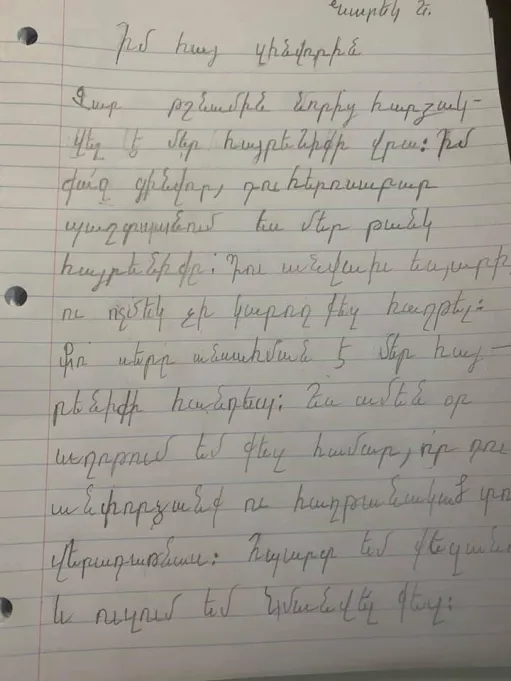 Նարեկ Ե.
Իմ հայ զինվորին
Չար թշնամին նորից հարձակ-
վել է մեր հայրենիքի վրա: Իմ
քաջ զինվոր, դու հերոսաբար
պաշտպանում ես մեր թանկ
հայրենիքը: Դու անվախ ես, արի
ու ոչմեկ չի կարող քեզ հաղթել:
Քո սերը անսահման է մեր հայ-
րենիքի հանդեպ: Ես ամեն օր
աղոթում եմ քեզ համար, որ դու
անփորձանք ու հաղթանակած տո
վերադառնաս: Հպարտ եմ քեզան
և ուզում եմ նմանվել քեզ: